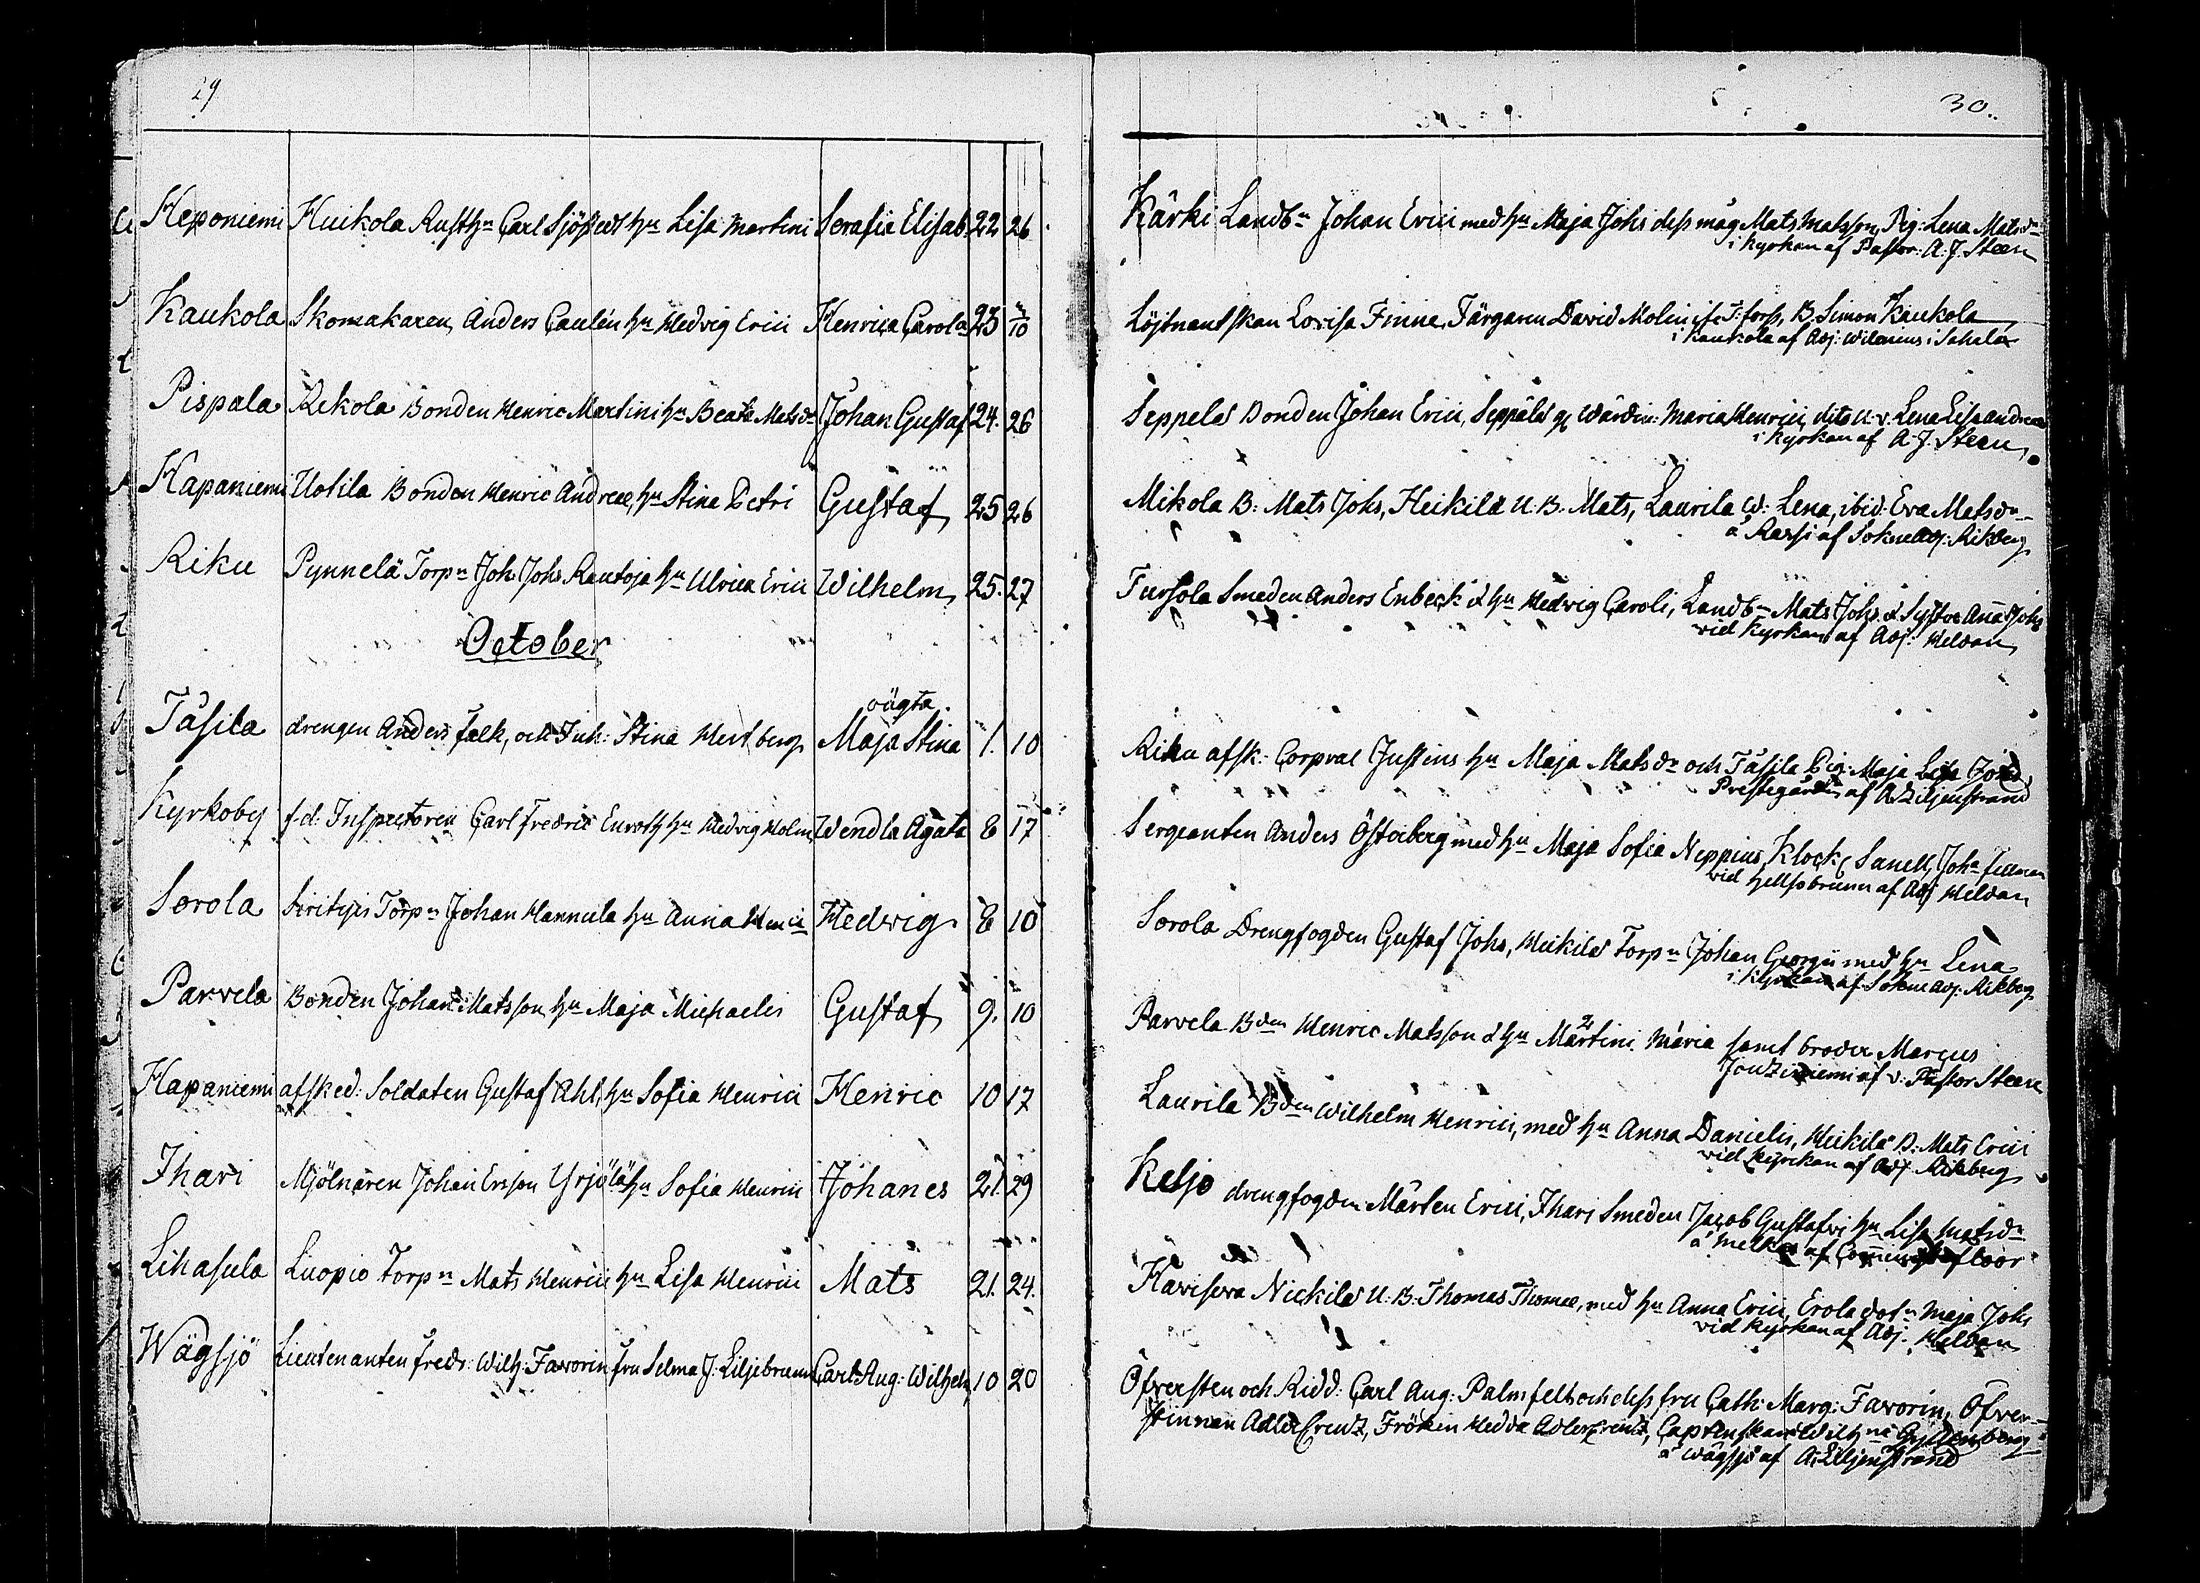 29
Heponiemi Huikola Rusth:n Carl Sjöstedt h:u Lisa Martini Serafia Elisab 22 26
Kaukola Skomakaren Anders Caulén h:u Hedvig Erici Henrica Carol:a 23 2/10
Pispala Rekola Bonden Henric Martini h:u Beata Matsd:r Johan Gustaf 24. 26
Hapaniemi Uotila Bonden Henric Andreæ, h:u Stina Petri Gustaf 25 26
Riku Pynnelä Torp:n Joh: Johs Rautoja h:u Ulrica Erici Wilhelm 25. 27
October
oägta
Täsilä drengen Anders Falk, och Inh: Stina Hertberg Maja Stina 1. 10
Kyrkoby f.d: Inspectoren Carl Fredric Enroth h:u Hedvig Holm Wendla Agata 8 17
Sorola Torp:n Johan Hannula h:u Anna Henrici Hedvig 8 10
Parvela Bonden Johan Matsson h:u Maja Michaelis Gustaf 9. 10
Hapaniemi afsked: Soldaten Gustaf Ahl, h:u Sofia Henrici Henric 10 17
Ihari Mjölnaren Johan Ersson Yrjölä h:u Sofia Henrici Johanes 21. 29
Lihasula Luopio Torp:n Mats Henrici h:u Lisa Henrici Mats 21. 24.
Wägsjö Lieutenanten Fredr: Wilh: Favorin fru Selma J. Liljebrunn Carl Aug: Wilhelm 10 20
30.
Kärki Landb:n Johan Erici med h:u Maja Johs dess måg Mats Matsson, Pig: Lena Matsd:r
i kyrkan af Pastor: A: J. Steen
Löjtnantskan Lovisa Finne, Färgaren David Molin B. Simon Kaukola
i Kaukola af Adj: Wilenius i Sahala
Seppelä Bonden Johan Erici, Seppälä Wärdin: Maria Henrici, dito U: v: Lena Lisa Andreæ
i kyrkan af A. J. Steen
Mikola B: Mats Johs, Heikilä U. B. Mats, Laurila W: Lena, ibid: Eva Matsd:r
å Rassi af Sokne adj: Rikberg
Fursola Smeden Anders Enbeck & h:u Hedvig Caroli, Landb:n Mats Johs & Syster Anna Johs
vid Kyrkan af Adj: Heldan
Riku afsk: Corpral Justins h:u Maja Matsd:r och Täsilä Pig: Maja Lisa Johsd:r
Prestegården af A: Liljenstrand
Sergeanten Anders Österberg med h:u Maja Sofia Neppius, Klock: Sanell, Joh:a Fellman
vid helsobrunn af Adj Heldan
Sorola Drengfogden Gustaf Johs, Heikilä Torp:n Johan Georgii med h:u Lena
i Kyrkan af Sokne adj: Rikberg
Parvela Bden Henric Matsson & h:u Martini Maria samt broder Marcus
Joutziniemi af v: Pastor Steen
Laurila Bden Wilhelm Henrici, med h:u Anna Danielis, Heikilä B: Mats Erici
vid kyrckan af Adj: Rikberg
Keljo drengfogden Mårten Erici, Ihari Smeden Jacob Gustafvi h:u Lisa Matsd:r
å af
Havisevo Nickilä U: B: Thomas Thomæ, med h:u Anna Erici, Erola dot:n Maja Johs
vid kyrkan af Adj: Heldan
Öfversten och Ridd: Carl Aug: Palmfelt och dess fru Cath: Marg: Favorin, Öfver-
stinnan AdlerCreutz, Fröken Hedda AdlerCreutz, Captenskan Wilh:na Gyllenberg
å Wägsjö af A: Liljenstrand